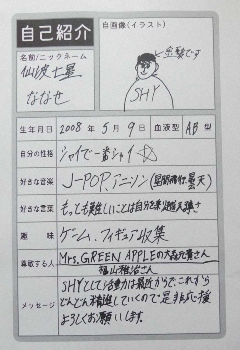 自己紹介
自画像(イラスト)
名前/ニックネーム
仙波七星
ななせ
金髪です
SHY
生年月日 2008年5月9日 血液型 AB型
自分の性格 シャイで一番シャイ
好きな音楽 J-POP、アニソン
好きな言葉 もっとも難しいことは自分を
趣味 ゲーム、フィギュア収集
尊敬する人 Mrs.GREEN APPLEの大森元貴さん
福山雅治さん
メッセージ SHYとしての活動は最近からで、これから
どんどん精進していくので是非応援
よろしくお願いします。